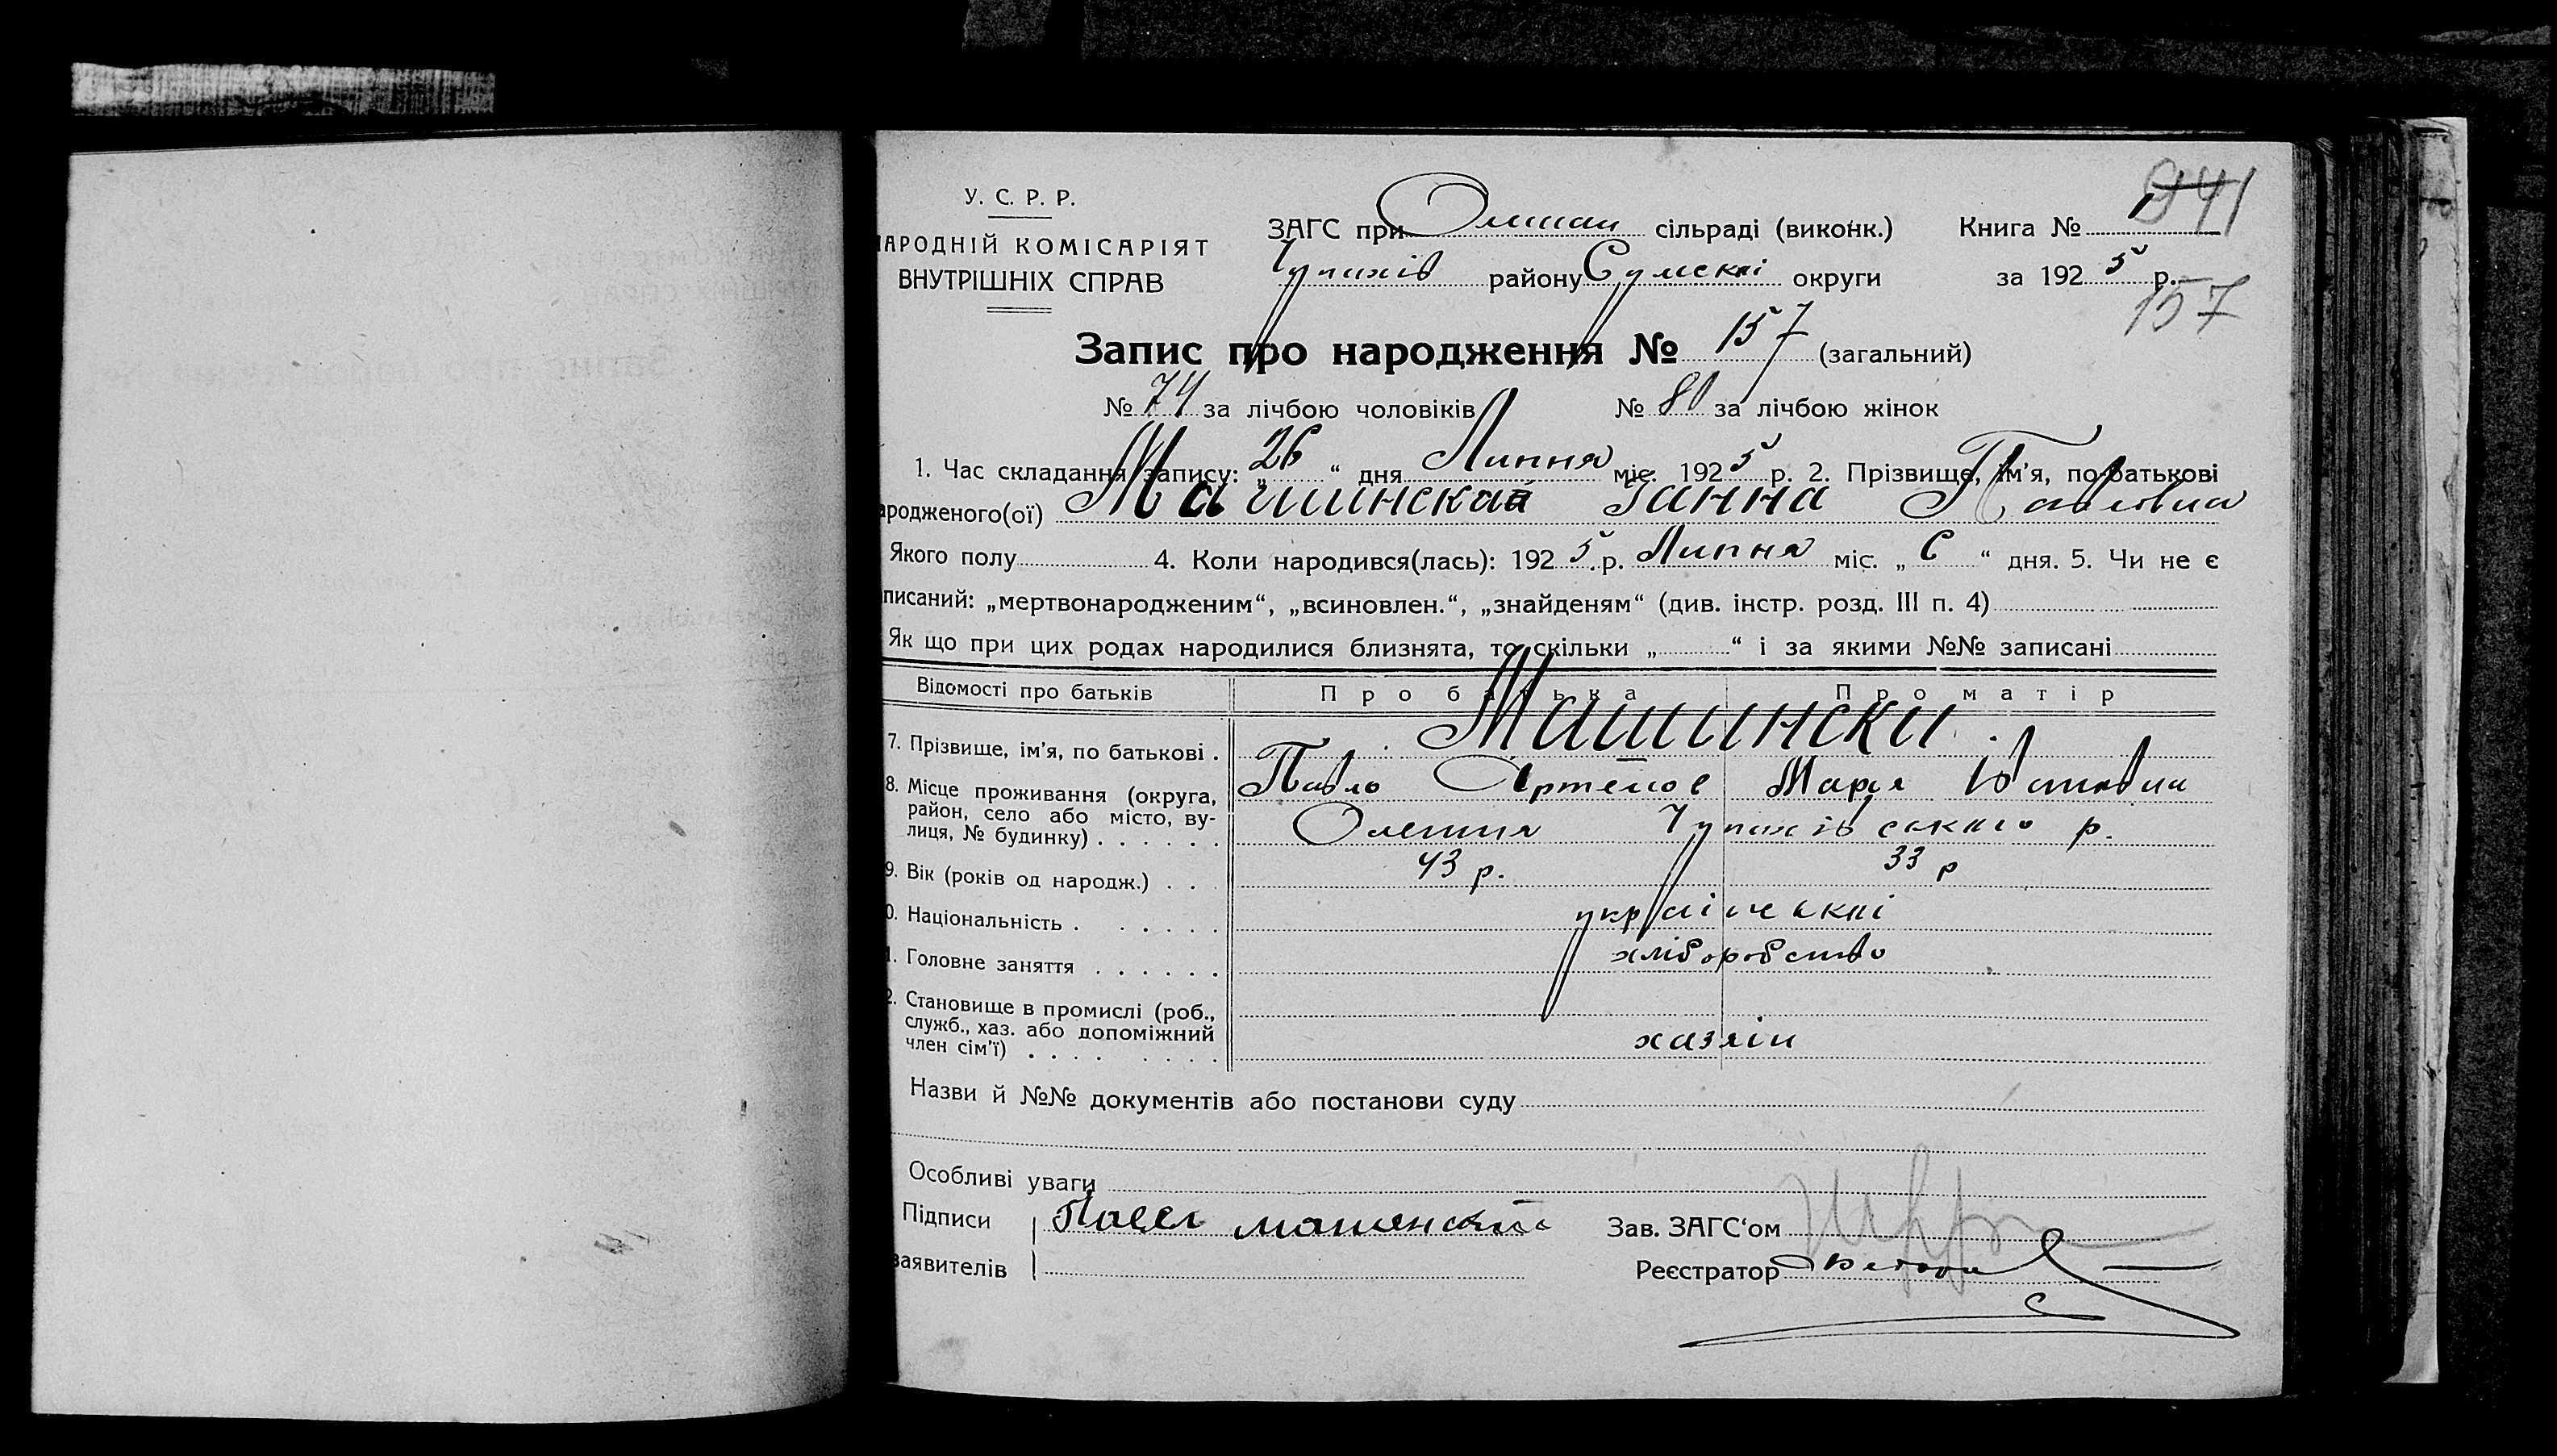 У. С. Р. Р.
НАРОДНІЙ КОМІСАРІЯТ
ВНУТРІШНІХ СПРАВ
ЗАГС при сільраді (виконк.) Книга № 1 941
Чупахів району Сумскої округи за 1925 р.
157
Запис про народження № 157 (загальний)
№ 74 за лічбою чоловіків № 80 за лічбою жінок
1. Час складання запису: „26“ дня Липня міс. 1925 р. 2. Прізвище, ім'я, по-батькові
ародженого(ої) Машинская Ганна Павловна
Якого полу 4. Коли народився(лась): 1925 р. Липня міс. „6“ дня. 5. Чи не є
писаний: „мертвонародженим“, „всиновлен.“, „знайденям“ (див. інстр. розд. III п. 4)
Як що при цих родах народилися близнята, то скільки „ “ і за якими №№ записані
Відомості про батьків Про батька Про матір
7. Прізвище, ім'я, по батькові . Машински
Павло Артемов Марія
8. Місце проживання (округа, район, село або місто, вулиця, № будинку) . . . . . . Олешня Чупахівського р.
9. Вік (років од народж.) . . . 43 р. 33 р
0. Національність . . . . . . українські
1. Головне заняття . . . . . . хліборобство
2. Становище в промислі (роб., служб., хаз. або допоміжний член сім'ї) . . . . . . . . хазяїн
Назви й №№ документів або постанови суду
Особливі уваги
Підписи Павел Машенский Зав. ЗАГС'ом
заявителів Реєстратор